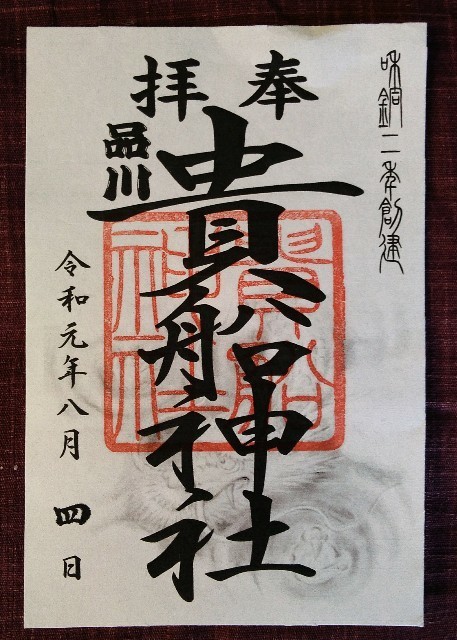 和銅二年創建
奉拝
品川
貴船神社
貴船
神社
令和元年八月四日